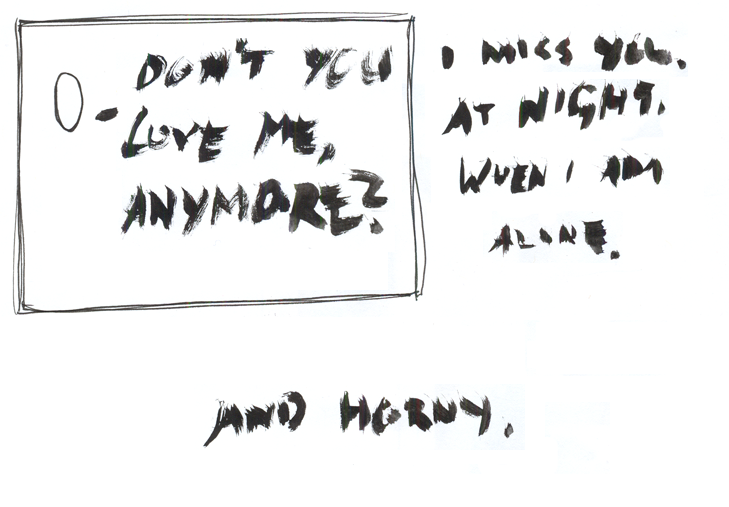 DON'T YOU
LOVE ME,
ANYMORE?
I MISS YOU.
AT NIGHT.
WHEN I AM
ALONE.
AND HORNY.